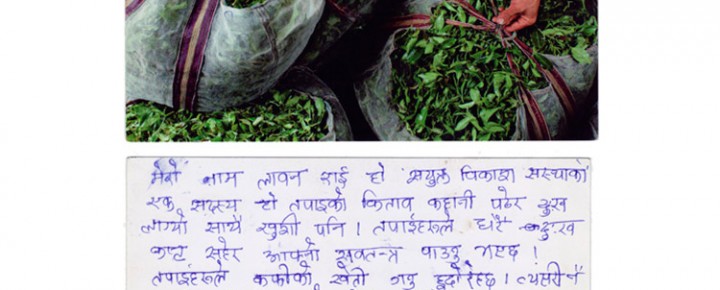 मेरो नाम लावन राई हो संयुक्त विकाश संस्थाको
एक सदस्य हो तपाइको किताव कहानी पढेर दुख
लाग्यो साथै खुशी पनि । तपाईहरूले धेरै दुःख
कष्ट सहेर आफ्नो स्वतन्त्र पाउनु भएछ ।
तपाईहरूले कफीको खेती गर्नु हुदोरहेछ । त्यसरी नै